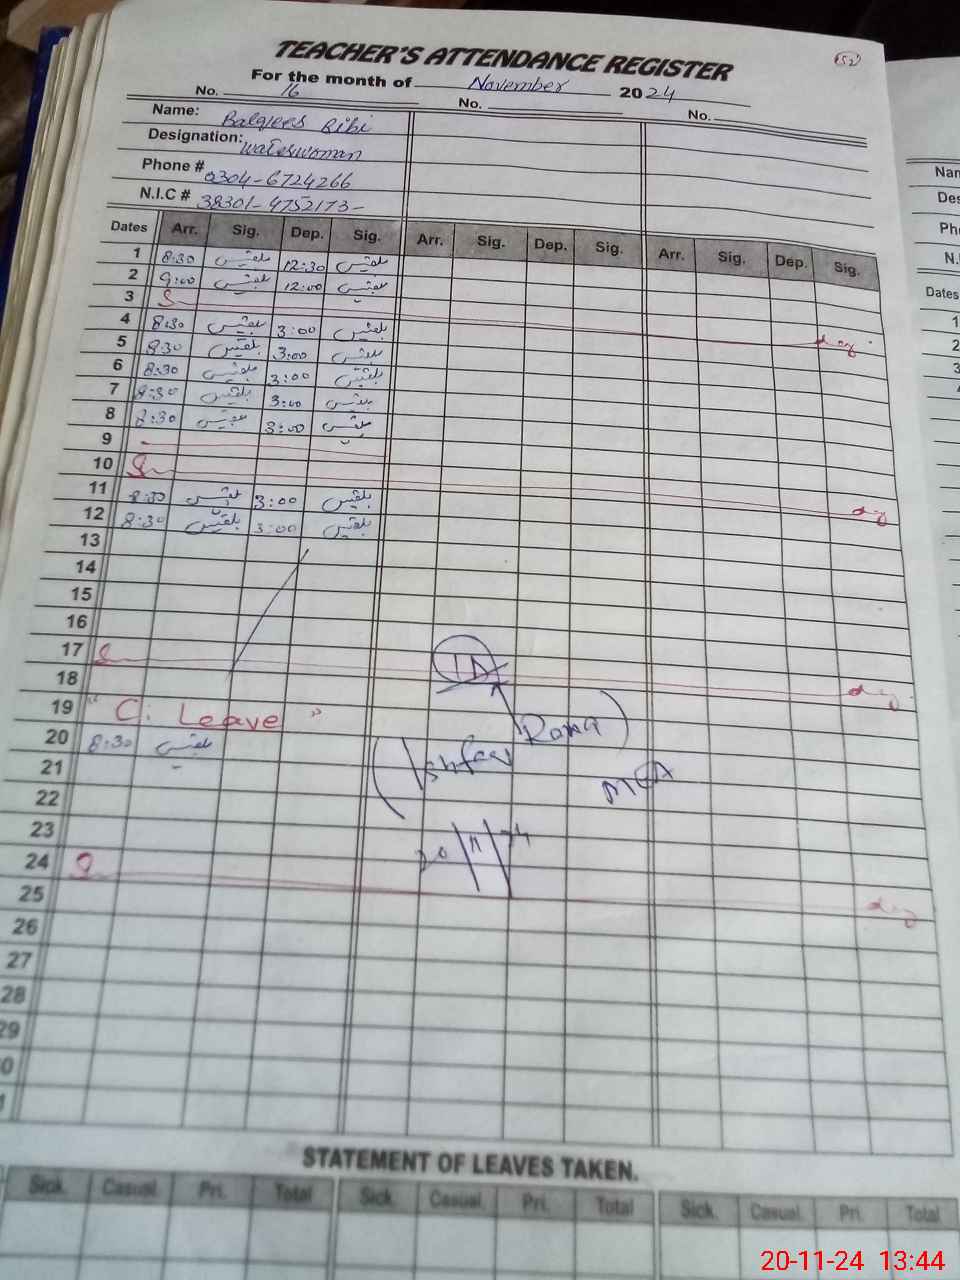 52
TEACHER'S ATTENDANCE REGISTER
For the month of November 2024
No. 16 No. No.
Name: Balqees Bibi
Designation: waterwoman
Phone # 0304-6724266
N.I.C # 38301-4752173-
Dates Arr. Sig. Dep. Sig. Arr. Sig. Dep. Sig. Arr. Sig. Dep. Sig.
1 8:30 بلقیس 12:30 بلقیس
2 9:00 بلقیس 12:00 بلقیس
3 S day
4 8:30 بلقیس 3:00 بلقیس
5 8:30 بلقیس 3:00 بلقیس
6 8:30 بلقیس 3:00 بلقیس
7 8:30 بلقیس 3:00 بلقیس
8 8:30 بلقیس 3:00 بلقیس
9
10 S day
11 8:30 بلقیس 3:00 بلقیس
12 8:30 بلقیس 3:00 بلقیس
13
14
15
16
17 S day
18
19 "C. Leave"
20 8:30 بلقیس
21 (Ishfaq Rana)
22 MEA
23 20/11/24
24 S day
25
26
27
28
29
0
1
STATEMENT OF LEAVES TAKEN.
Sick. Casual. Pri. Total Sick. Casual. Pri. Total Sick. Casual. Pri. Total
Nam
Des
Pho
N.I
Dates
1
2
3
20-11-24 13:44